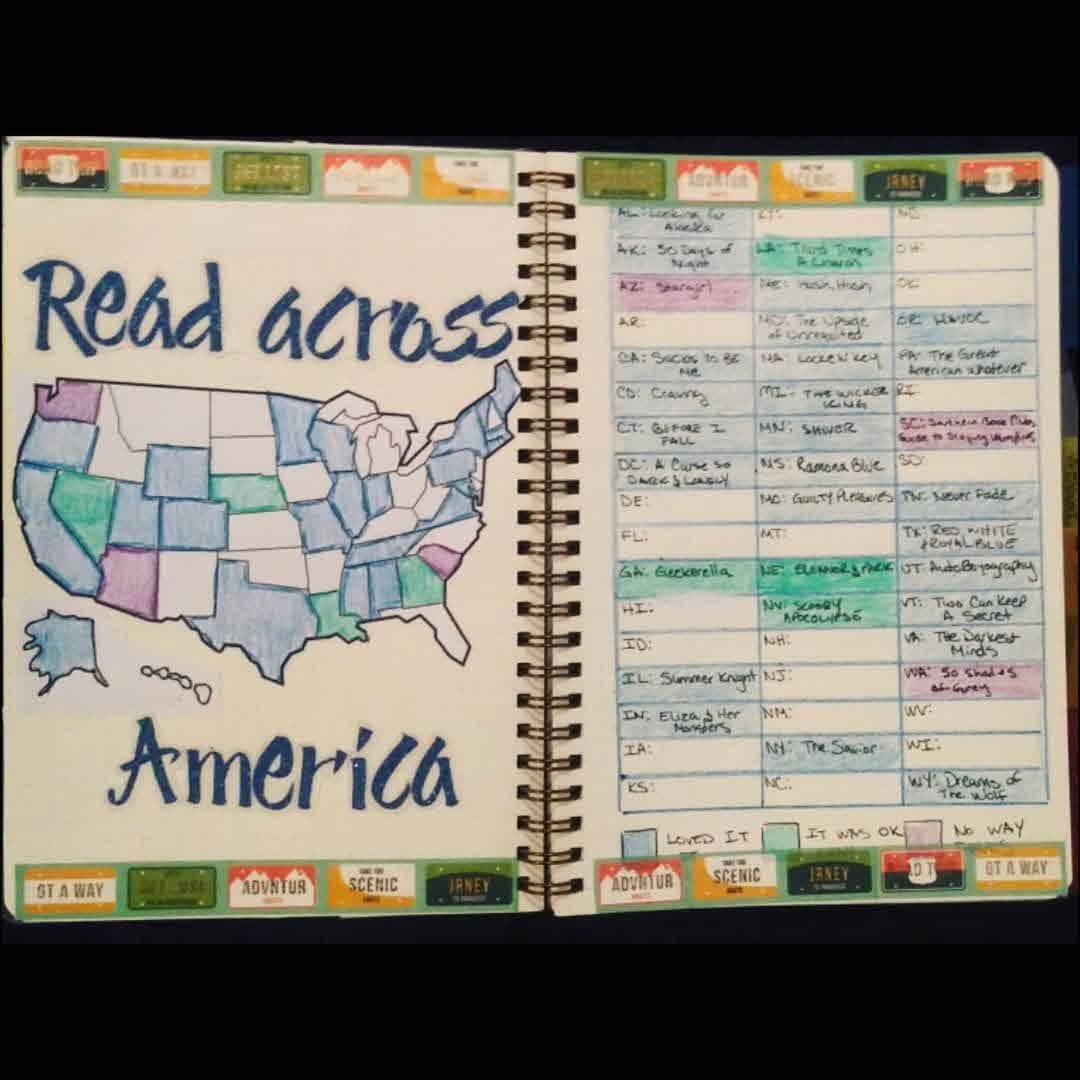 ROAD T
GT A WAY
TAKE THE
ADVNTUR
TAKE THE
SCENIC
JRNEY
Read across
America
GT A WAY
ADVNTUR
TAKE THE
SCENIC
JRNEY
AL: Looking for
Alaska
AK: 30 Days of
Night
AZ: Stargirl
AR:
CA: Suck to Be
Me
CO: Craving
CT: BEFORE I
FALL
DC: A Curse so
DARK & LONELY
DE:
FL:
GA: Geekerella
HI:
ID:
IL: Summer Knight
IN: Eliza & Her
Monsters
IA:
KS:
KY:
LA: Third Times
A Charm
ME: Hush, Hush
MD: The Upside
of Unrequited
MA: LOCKE N KEY
MI: THE WICKER
KING
MN: SHIVER
MS: Ramona Blue
MO: GUILTY PLEASURES
MT:
NE: ELEANOR & PARK
NV: SCOOBY
APOCOLIPSE
NH:
NJ:
NM:
NY: The Savior
NC:
ND:
OH:
OR: HAVOC
PA: The Great
American whatever
RI:
SC: Southern Book Clubs
Guide to Slaying Vampires
SD:
TN: Never Fade
TX: RED WHITE
& ROYAL BLUE
UT: Autoboyography
VT: Two Can Keep
A Secret
VA: The Darkest
Minds
WA: 50 Shades
of Grey
WV:
WI:
WY: Dreams of
The Wolf
LOVED IT
IT WAS OK
NO WAY
ADVNTUR
TAKE THE
SCENIC
JRNEY
GT A WAY